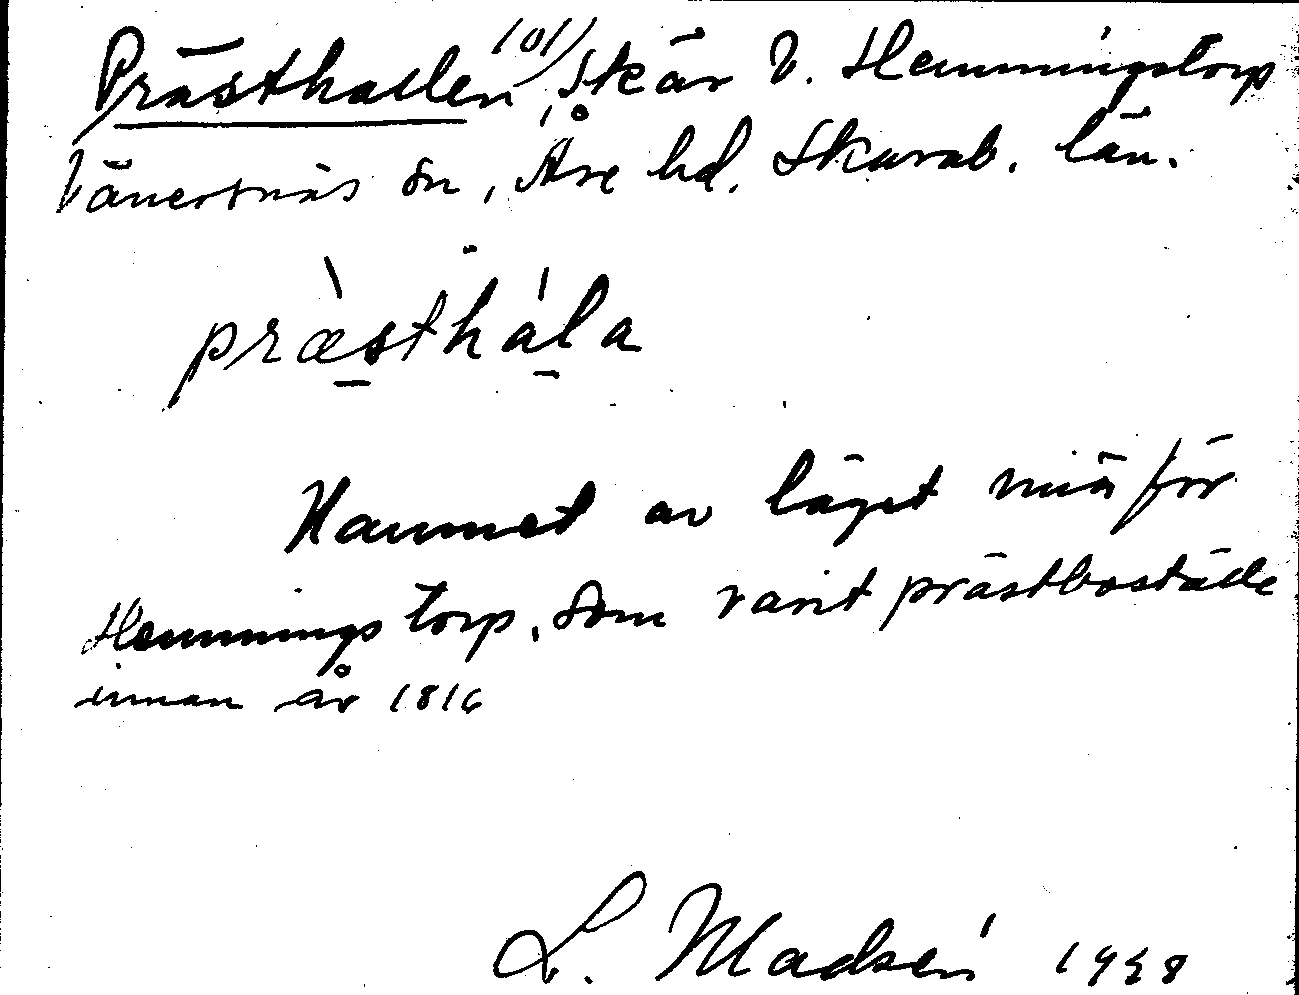 Prästhallen 101/, Skär V. Hemmingstorp
Vänersnäs sn, Åse hd. Skarab. län.
præ̀sthála
Namnet av läget mitför
Hemmingstorp, som varit prästboställe
innan år 1816
L. Madsén 1928